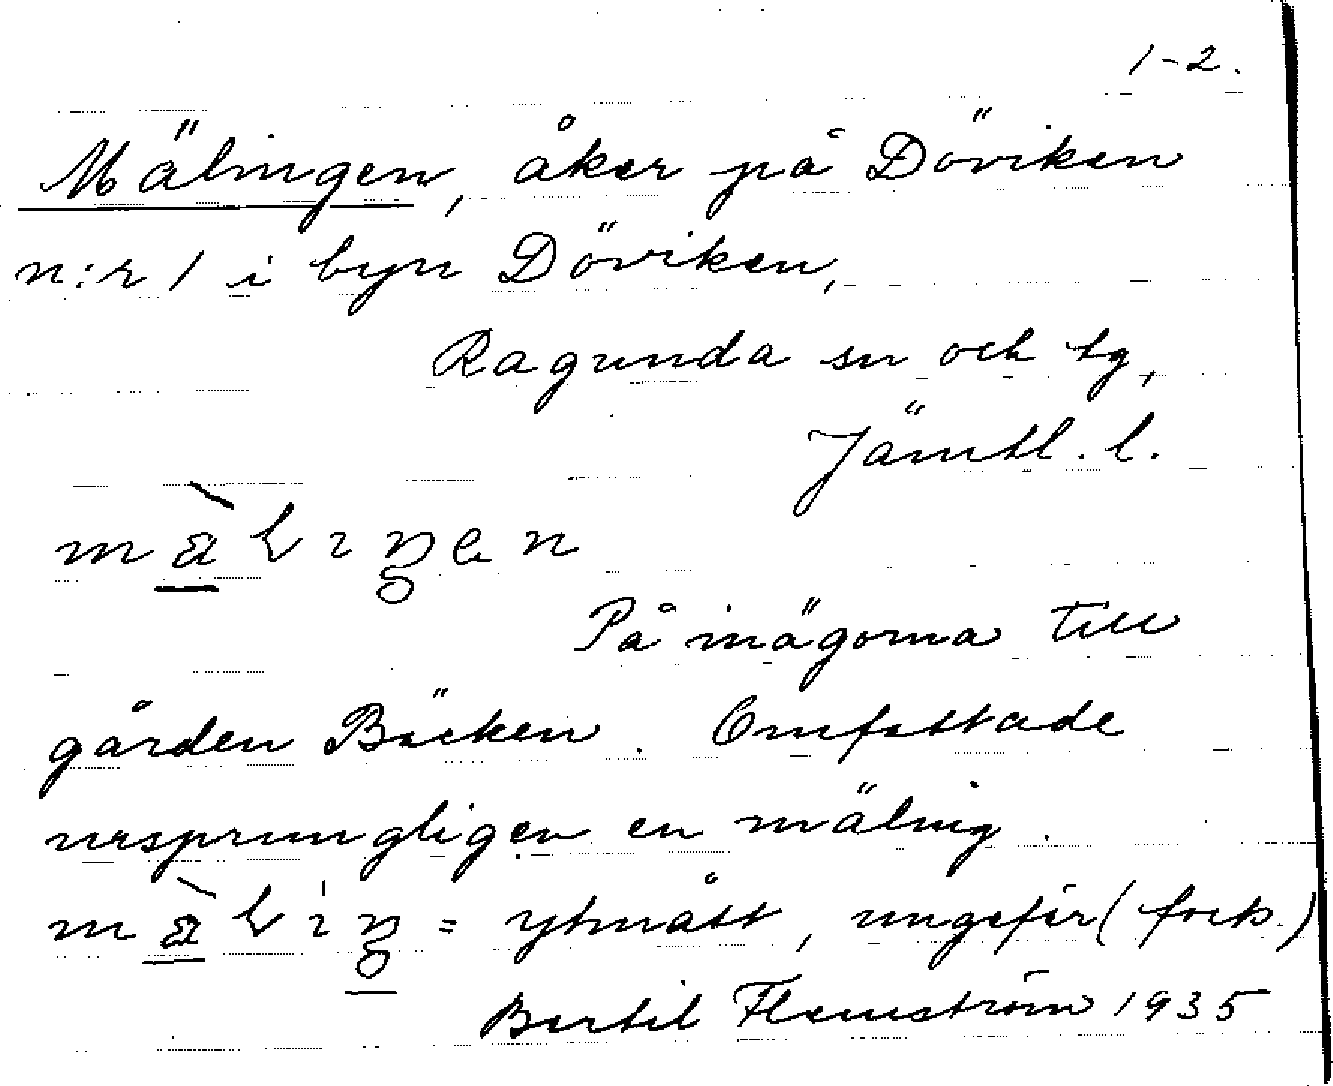 1-2.
Mälingen, åker på Döviken
n:r 1 i byn Döviken,
Ragunda sn och tg,
Jämtl. l.
På inägorna till
gården Bäcken. Omfattade
ursprungligen en mäling.
= ytmått, ungefär (fork.)
Bertil Flemström 1935